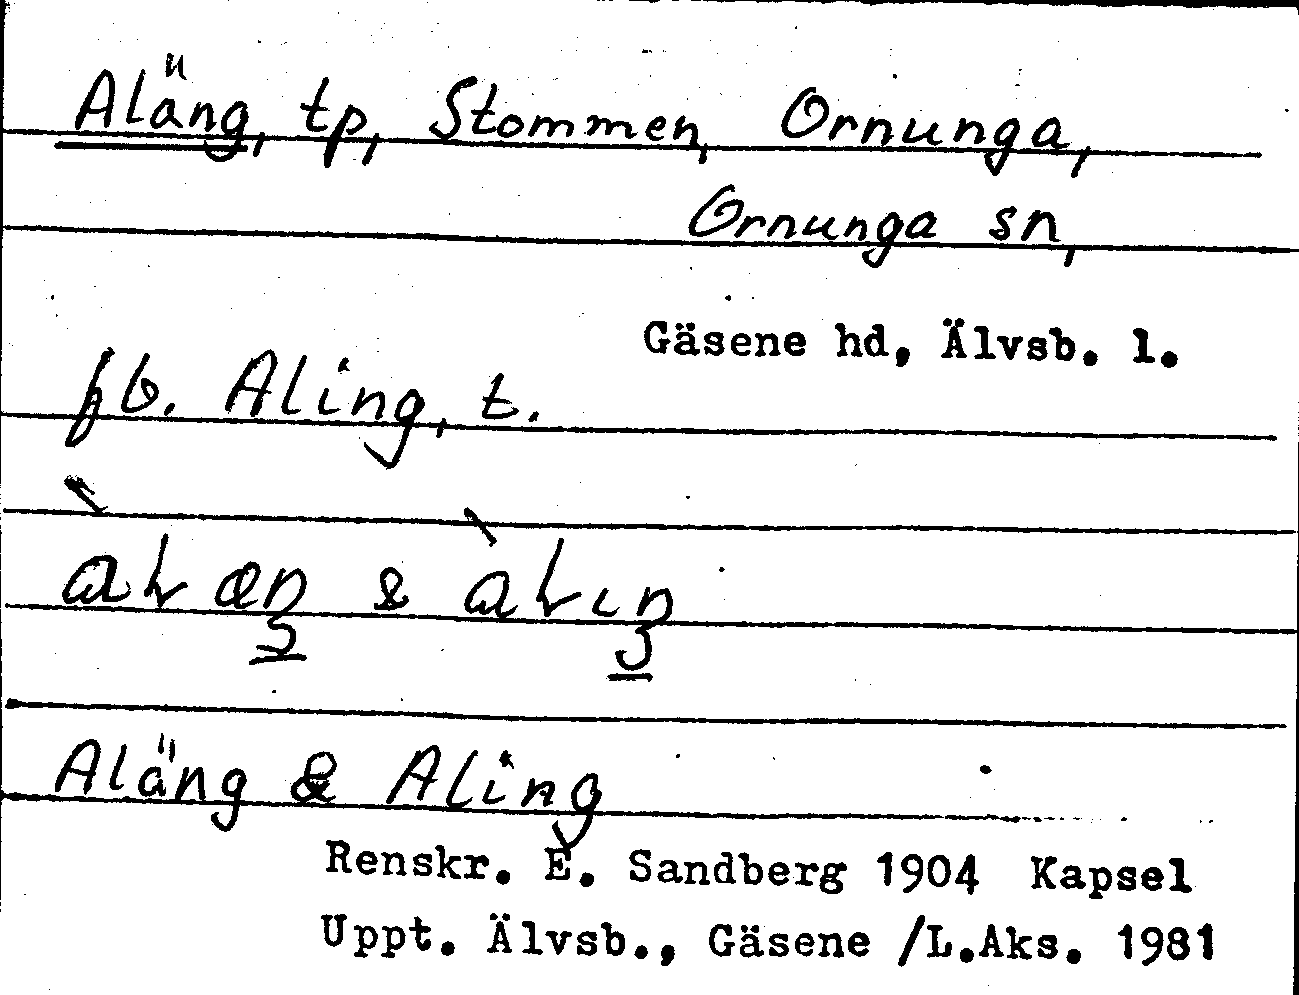 Aläng, tp, Stommen, Ornunga,
Ornunga sn,
Gäsene hd, Älvsb. l.
fb. Aling, t.
&
Aläng & Aling
Renskr. E. Sandberg 1904 Kapsel
Uppt. Älvsb., Gäsene /L.Aks. 1981